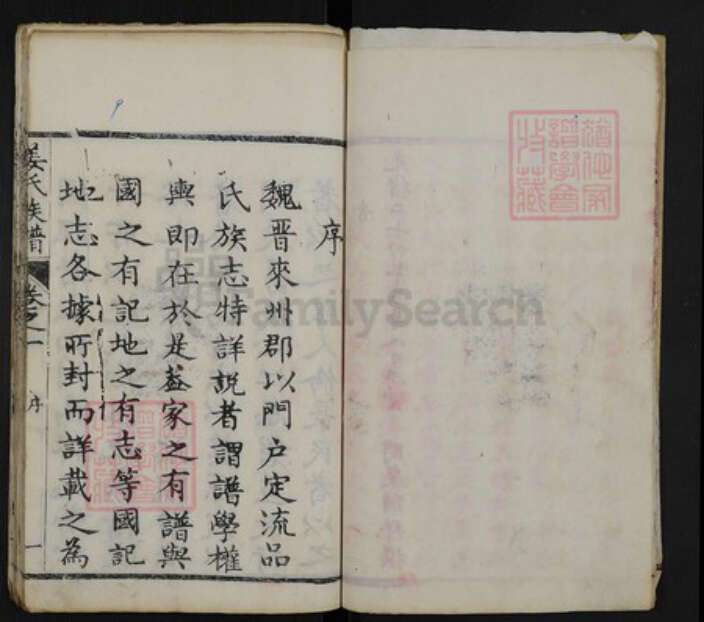 序
魏晉來州郡以門户定流品
氏族志特詳説者謂譜學權
輿即在於是葢家之有譜與
國之有記地之有志等國記
地志各據所封而詳載之為
姜氏族譜 卷之一 序 一
FamilySearch
譜學會
特藏